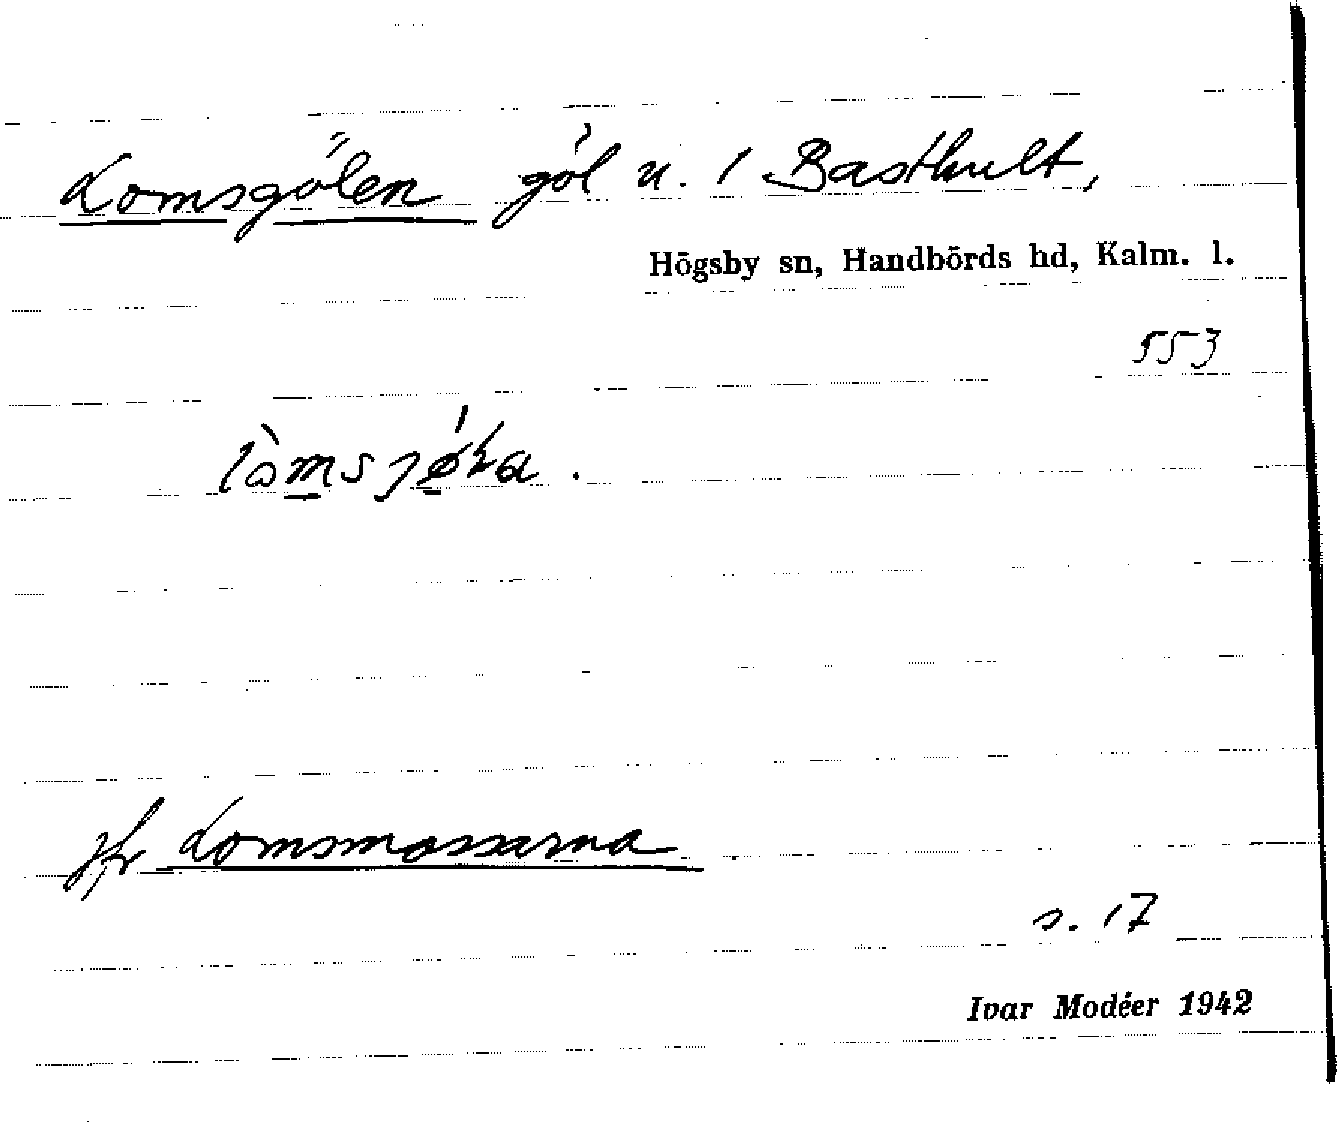 Lomsgölen göl u. 1 Basthult,
Högsby sn, Handbörds hd, Kalm. l.
553
jfr Lomsmossarna
s. 17
Ivar Modéer 1942